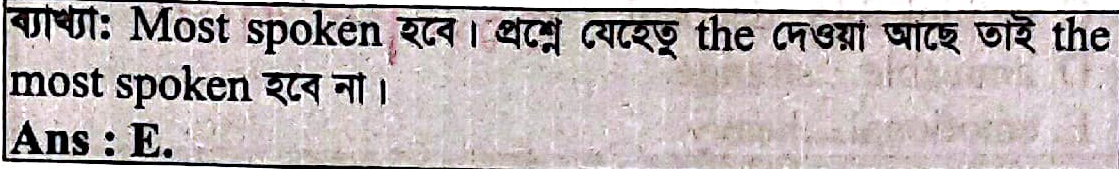 ব্যাখ্যা: Most spoken হবে। প্রশ্নে যেহেতু the দেওয়া আছে তাই the
most spoken হবে না।
Ans : E.